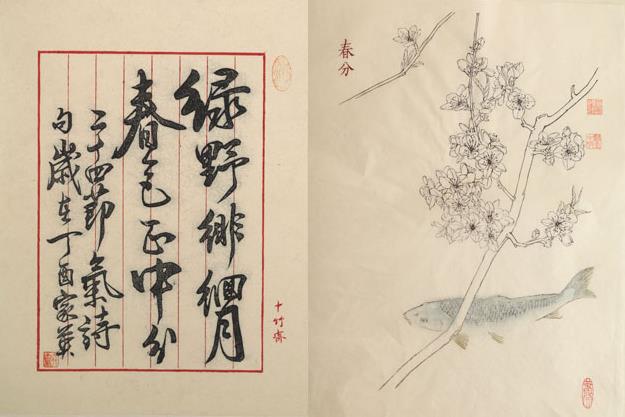 绿野徘徊月
春色正中分
二十四節氣詩
句歲在丁酉家英
十竹齋
春分